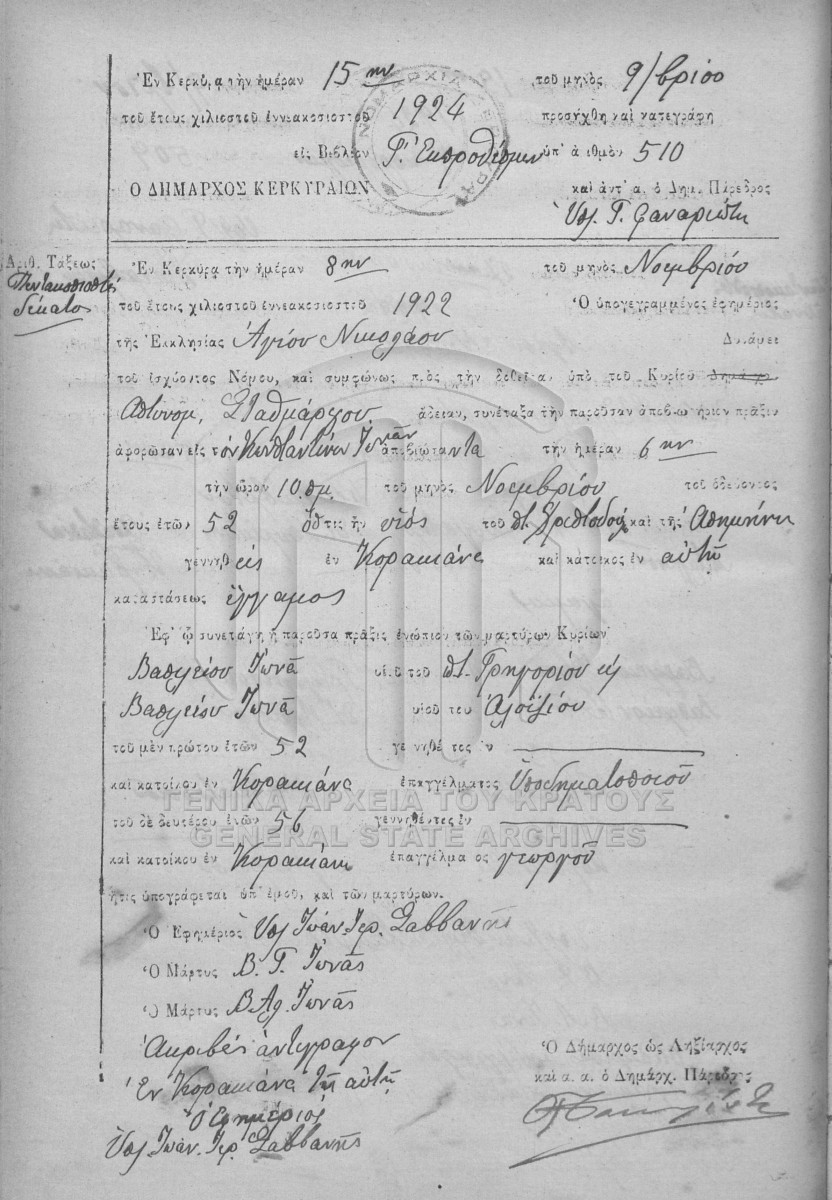 Ἐν Κερκύρᾳ τὴν ἡμέραν 15ην τοῦ μηνὸς 9/βρίου
τοῦ ἔτους χιλιοστοῦ ἐννεακοσιοστοῦ 1924 προσήχθη καὶ κατεγράφη
εἰς Βιβλίον Γ. Ἐκπροθέσμων ὑπ' ἀριθμὸν 510
Ο ΔΗΜΑΡΧΟΣ ΚΕΡΚΥΡΑΙΩΝ καὶ ἀντ' α. ὁ Δημ. Πάρεδρος
Ὑπ. Γ. Φαναριώτη
Ἀριθ. Τάξεως
Πεντακοσιοστὸς
Δέκατος
Ἐν Κερκύρᾳ τὴν ἡμέραν 8ην τοῦ μηνὸς Νοεμβρίου
τοῦ ἔτους χιλιοστοῦ ἐννεακοσιοστοῦ 1922 Ὁ ὑπογεγραμμένος ἐφημέριος
τῆς Ἐκκλησίας Ἁγίου Νικολάου Δυνάμει
τοῦ ἰσχύοντος Νόμου, καὶ συμφώνως πρὸς τὴν δοθεῖσαν ὑπὸ τοῦ Κυρίου Δημάρχο
Ἀστυνομ. Σταθμάρχου ἄδειαν, συνέταξα τὴν παροῦσαν ἀποβιωτήριον πρᾶξιν
ἀφορῶσαν εἰς τὸν Κωνσταντῖνον Ἰωνᾶν ἀποβιώσαντα τὴν ἡμέραν 6ην
τὴν ὥραν 10 πμ. τοῦ μηνὸς Νοεμβρίου τοῦ ὁδεύοντος
ἔτους ἐτῶν 52 ὅστις ἦν υἱὸς τοῦ ποτ. Χριστοδούλ καὶ τῆς Ἀσημίνης
γεννηθεὶς ἐν Κορακιάνᾳ καὶ κάτοικος ἐν αὐτῇ
καταστάσεως ἔγγαμος
Ἐφ' ᾧ συνετάγη ἡ παροῦσα πρᾶξις ἐνώπιον τῶν μαρτύρων Κυρίων
Βασιλείου Ἰωνᾶ υἱοῦ τοῦ ποτ. Γρηγορίου καὶ
Βασιλείου Ἰωνᾶ υἱοῦ του Ἀλοϊζίου
τοῦ μὲν πρώτου ἐτῶν 52 γεννηθέντος ἐν
καὶ κατοίκου ἐν Κορακιάνᾳ ἐπαγγέλματος Ὑποδηματοποιοῦ
τοῦ δὲ δευτέρου ἐτῶν 56 γεννηθέντος ἐν
καὶ κατοίκου ἐν Κορακιάνᾳ ἐπαγγέλματος γεωργοῦ
ἥτις ὑπογράφεται ὑπ' ἐμοῦ, καὶ τῶν μαρτύρων.
Ὁ Ἐφημέριος Ὑπ. Ἰωάν. Ἱερ. Σαββανῆς
Ὁ Μάρτυς Β. Γ. Ἰωνᾶς
Ὁ Μάρτυς Β. Αλ. Ἰωνᾶς
Ἀκριβὲς ἀντίγραφον
Ἐν Κορακιάνᾳ τῇ αὐτῇ
Ὁ Ἐφημέριος
Ὑπ. Ἰωάν. Ἱερ. Σαββανῆς
Ὁ Δήμαρχος ὡς Ληξίαρχος
καὶ α. α. ὁ Δημάρχ. Πάρεδρος
ΓΕΝΙΚΑ ΑΡΧΕΙΑ ΤΟΥ ΚΡΑΤΟΥΣ
GENERAL STATE ARCHIVES